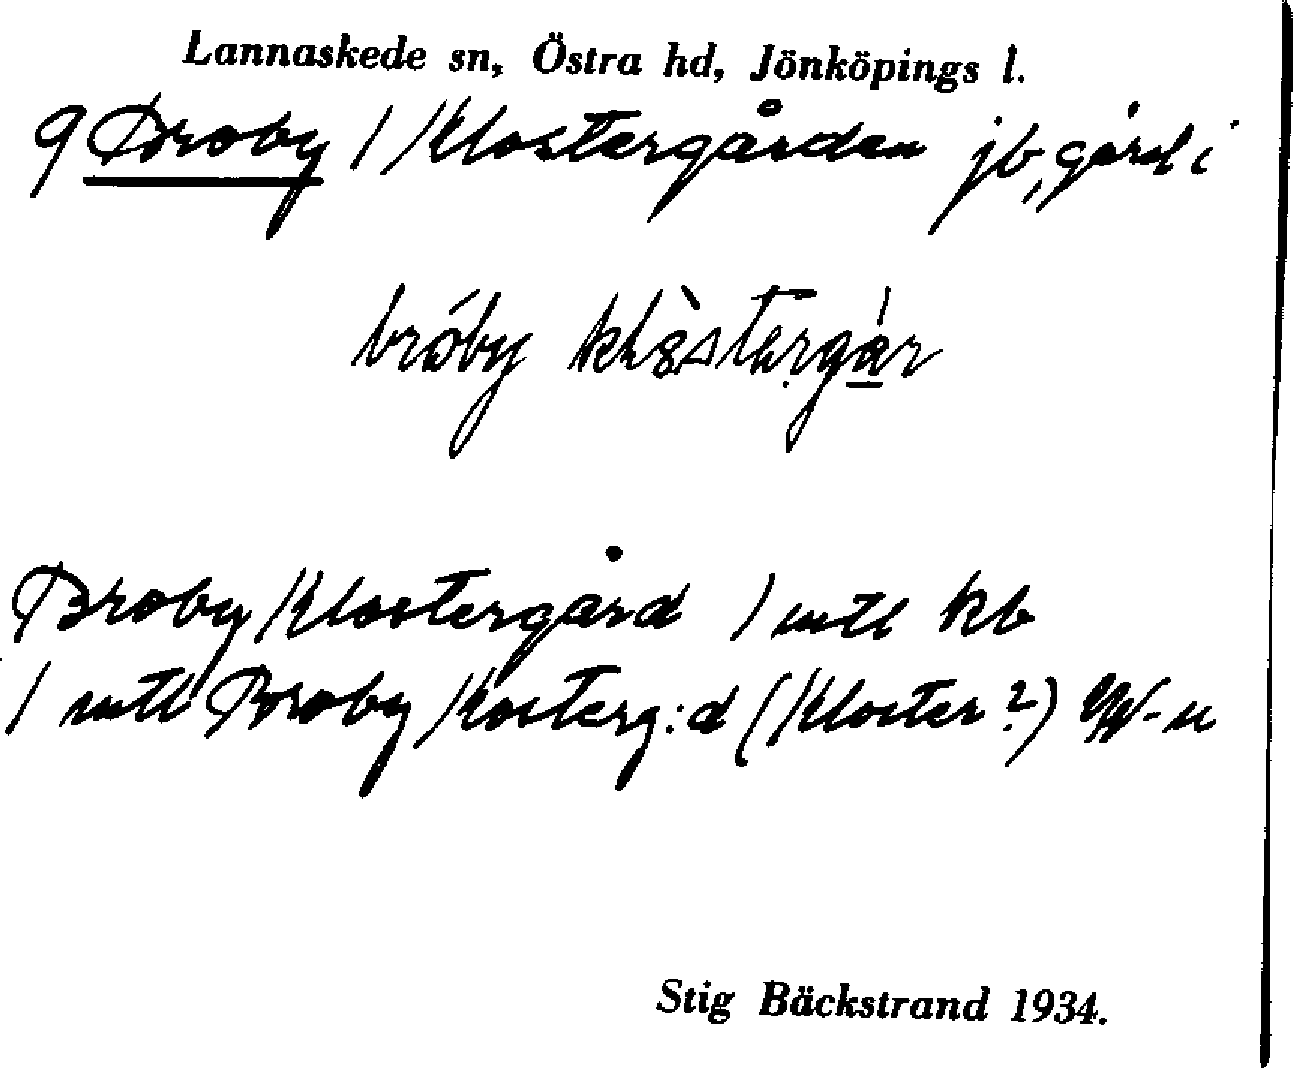 Lannaskede sn, Östra hd, Jönköpings l.
9 Broby 1 Klostergården jb, gård i
bróby klòstərgár
Broby Klostergård 1 mtl kb
1 mtl Broby Kosterg:d (Kloster?)
Stig Bäckstrand 1934.